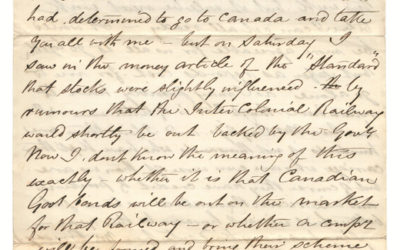 had determined to go to Canada and take
you all with me - but on Saturday I
saw in the money article of the "Standard"
that stocks were slightly influenced by
rumours that the InterColonial Railway
would shortly be out backed by the Govt
Now I dont know the meaning of this
exactly - whether it is that Canadian
Govt bonds will be out on the market
for that Railway - or whether a compy
will be formed and bring their scheme